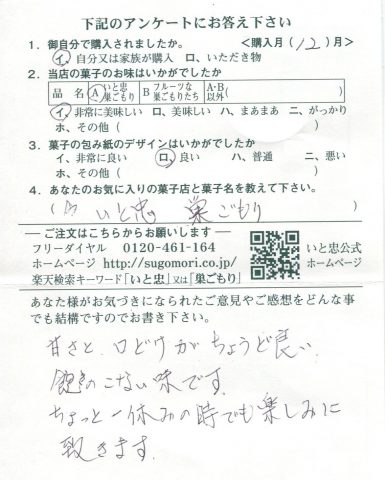 下記のアンケートにお答え下さい
1. 御自分で購入されましたか。 <購入月(12)月>
イ、自分又は家族が購入 ロ、いただき物
2. 当店の菓子のお味はいかがでしたか
品 名 A いと忠巣ごもり B フルーツな巣ごもりたち A・B以外( )
イ、非常に美味しい ロ、美味しい ハ、まあまあ ニ、がっかり
ホ、その他( )
3. 菓子の包み紙のデザインはいかがでしたか
イ、非常に良い ロ、良い ハ、普通 ニ、悪い
ホ、その他( )
4. あなたのお気に入りの菓子店と菓子名を教えて下さい。
( いと忠 巣ごもり )
― ご注文はこちらからお願いします ―
フリーダイヤル 0120-461-164
ホームページ http://sugomori.co.jp/
楽天検索キーワード「いと忠」又は「巣ごもり」
いと忠公式
ホームページ
あなた様がお気づきになられたご意見やご感想をどんな事
でも結構ですのでお書き下さい。
甘さと、口どけがちょうど良い、
飽きのこない味です。
ちょっと一休みの時でも楽しみに
致きます。